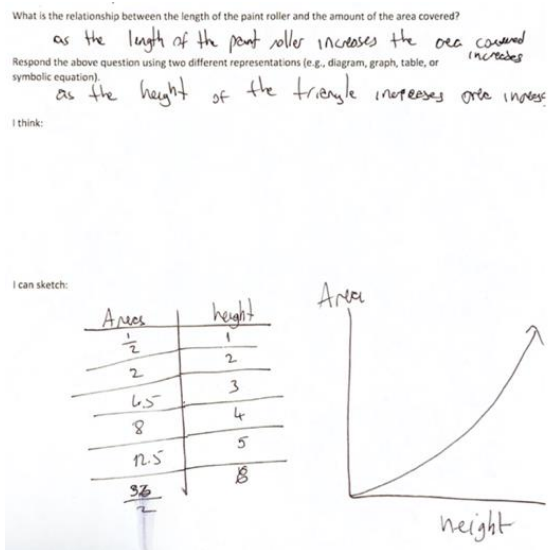 What is the relationship between the length of the paint roller and the amount of the area covered?
as the length of the paint roller increases the area covered increases
Respond the above question using two different representations (e.g., diagram, graph, table, or
symbolic equation).
as the height of the triangle increases area increase
I think:
I can sketch:
Areas height
1/2 1
2 2
4.5 3
8 4
12.5 5
36/2 6
Area
height